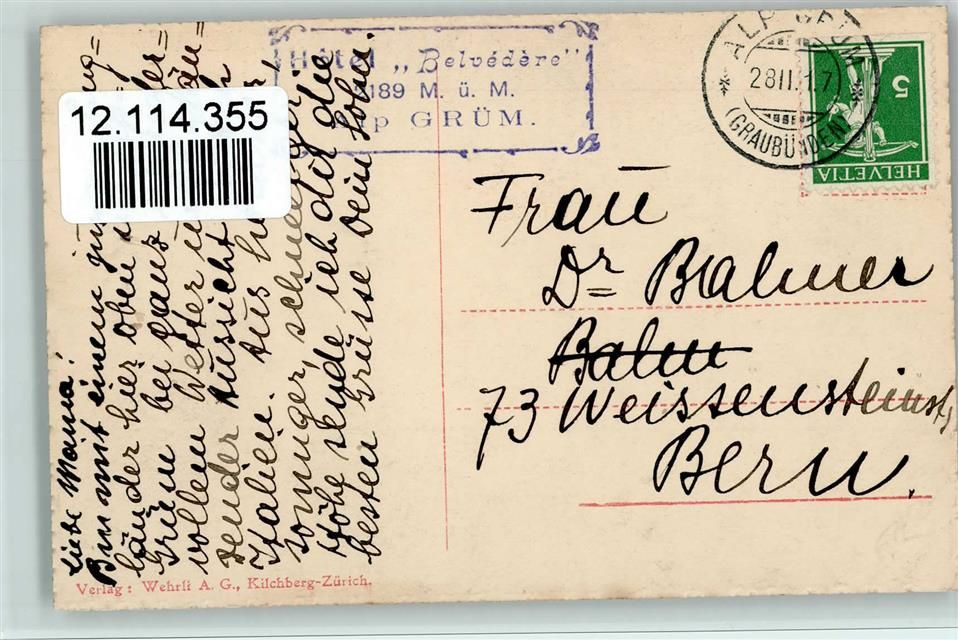 12.114.355
Hotel „Belvédère"
189 M. ü. M.
p GRÜM.
ALP GRÜM
28II. 1.7
(GRAUBÜNDEN)
5
HELVETIA
Liebe Mama!
Bin mit einem
länder hier oben
Grüm bei ganz
vollem Wetter
render Aussicht
Italien. Aus
sonniger
Höhe sende ich dir die
besten Grüsse Dein Sohn.
Frau
Dr Balmer
Balm
73 Weissensteinst
Bern.
Verlag: Wehrli A. G., Kilchberg-Zürich.